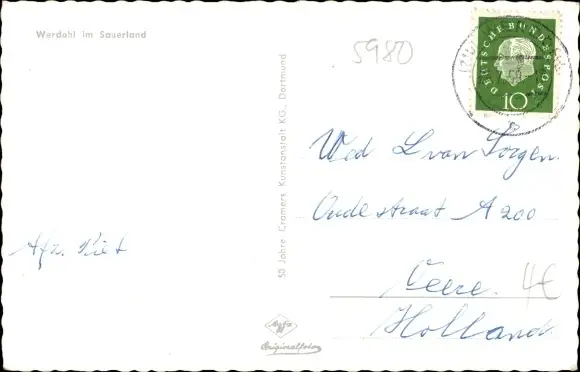 Werdohl im Sauerland
5980
DEUTSCHE BUNDESPOST
10
50 Jahre Cramers Kunstanstalt KG., Dortmund
Wed L van Sorgen
Oude straat A 200
Veere.
Holland
4€
Afz. Riet
Agfa
Originalfoto